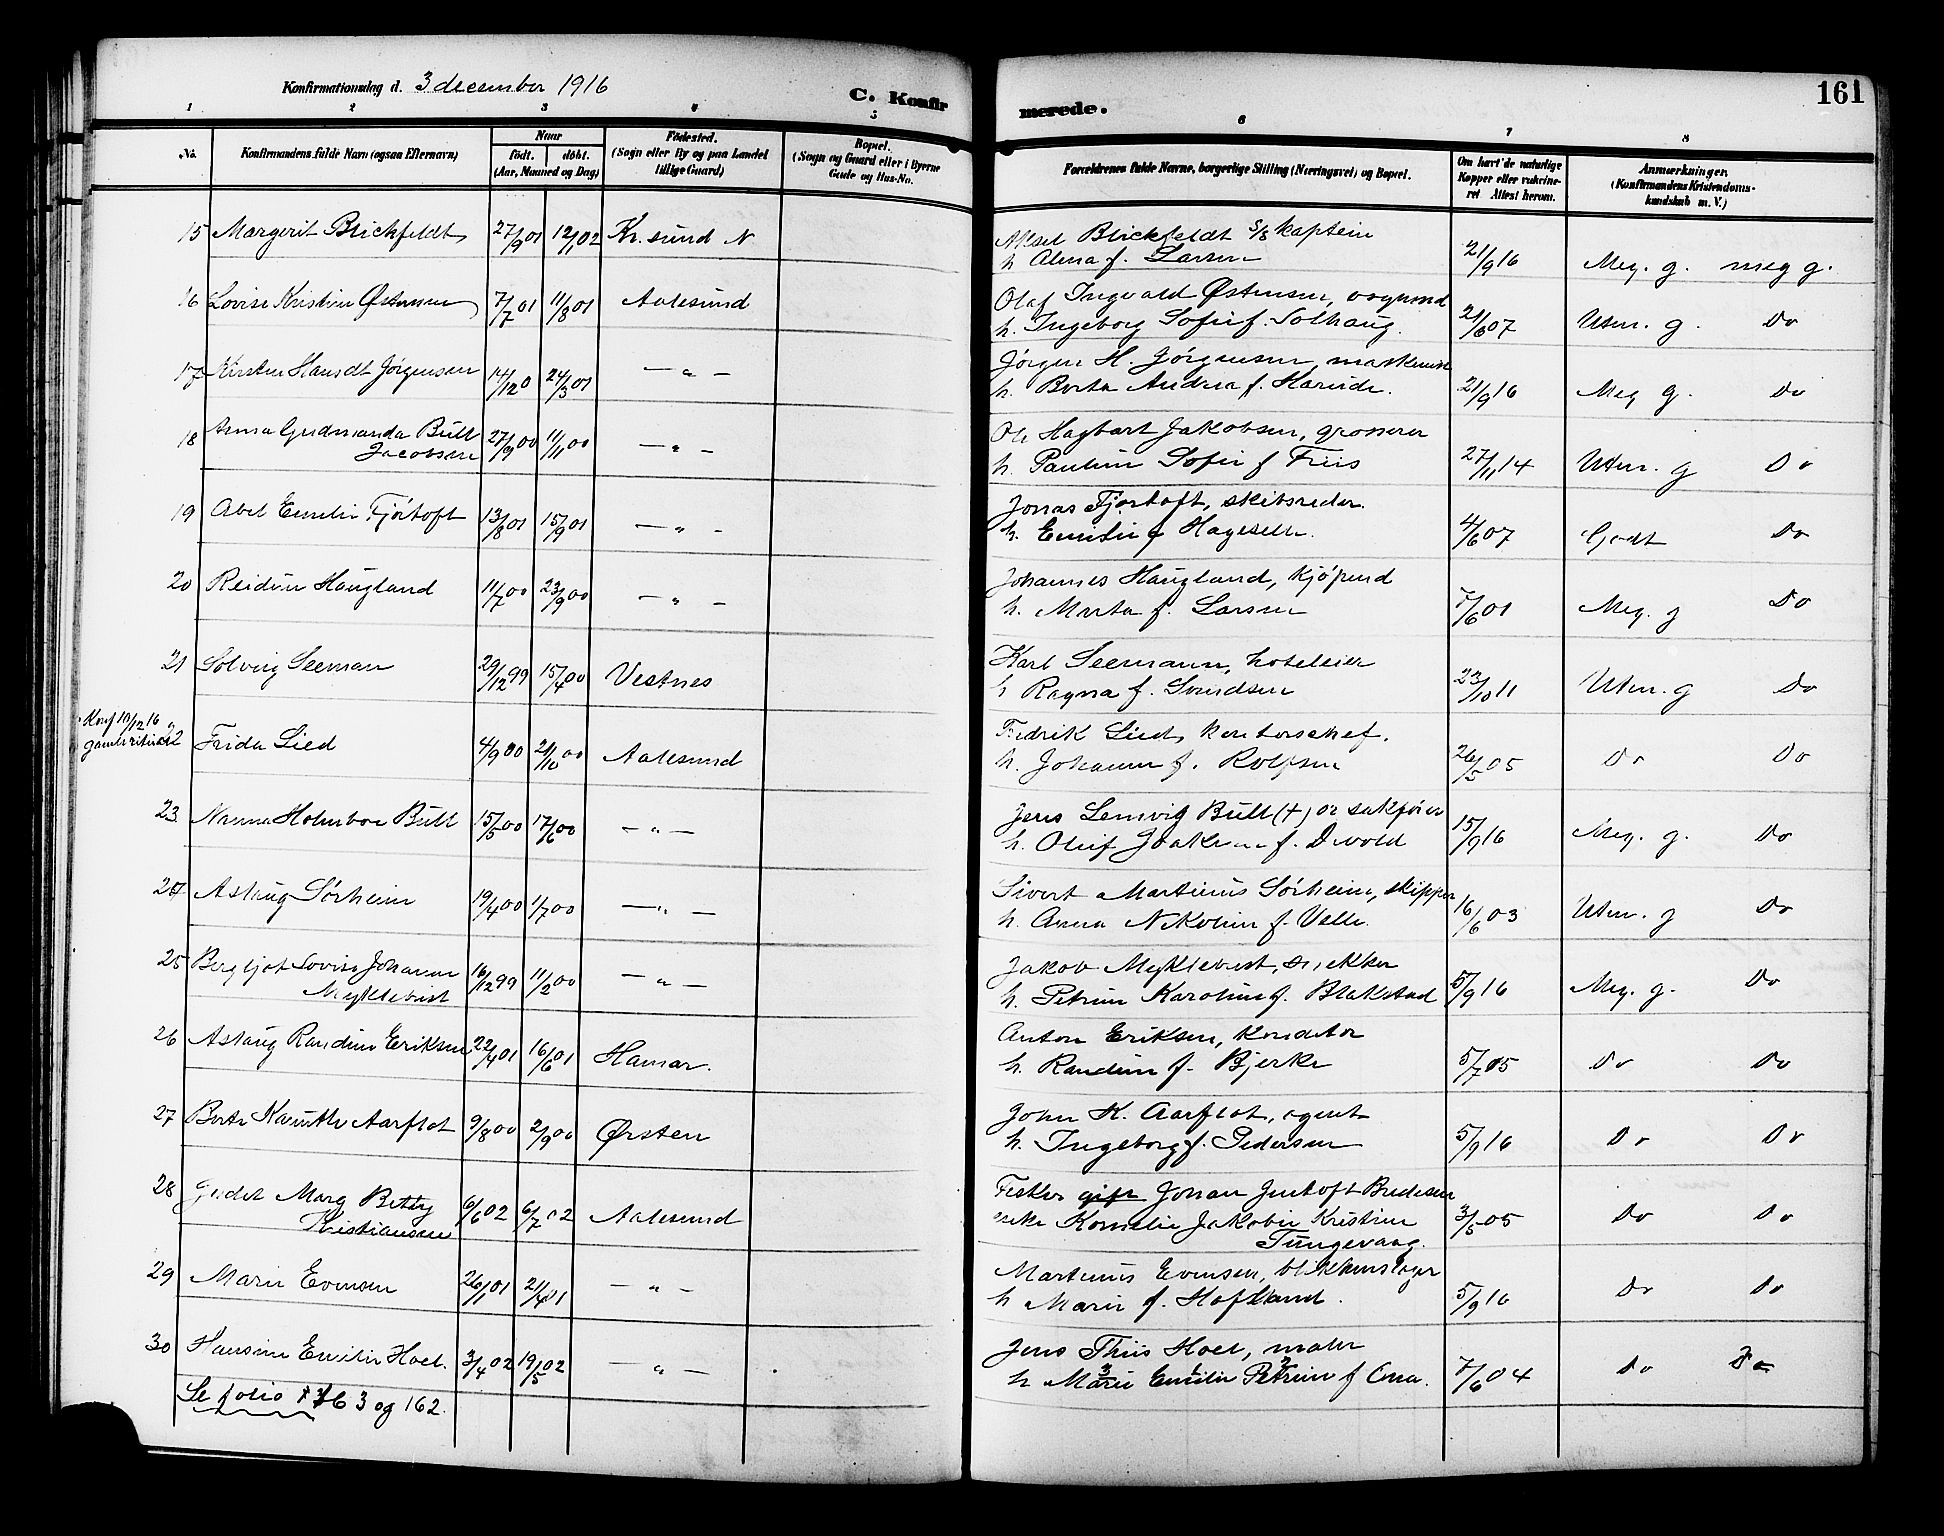 Konfirmationsdag d. 3 december 1916
C. Konfir
merede.
161
1 2 3 4 5 6 7 8
No.
Konfirmandens fulde Navn (ogsaa Efternavn)
Naar
födt. döbt.
(Aar, Maaned og Dag)
Födested.
(Sogn eller By og paa Landet
tillige Gaard)
Bopæl.
(Sogn og Gaard eller i Byerne
Gade og Hus-No.
Forældrenes fulde Navne, borgerlige Stilling (Næringsvei) og Bopæl.
Om havt de naturlige
Kopper eller vakcine-
ret Attest herom.
Anmærkninger.
(Konfirmandens Kristendoms-
kundskab m. V.)
15 Margerit Blickfeldt 27/9 01 12/1 02 Kr.sund N
Aksel Blickfeldt S/S kaptein
h Alma f. Larsen 21/9 16 Meg. g. meg g.
16 Lovise Kristine Østensen 7/7 01 11/8 01 Aalesund
Olaf Ingvald Østensen,
h. Ingeborg Sofie f. Solhaug. 21/6 07 Utm. g. Do
17 Kirsten Hansdt Jørgensen 14/12 0 24/3 01 — " —
Jørgen H. Jørgensen, maskinist
h. Berta Andrea f. Hareide. 21/9 16 Meg g. Do
18 Anna Gudmunda Bull
Jacobsen 27/9 00 11/11 00 — " —
Ole Hagbart Jakobsen, grosserer
h. Pauline Sofie f Friis 27/11 14 Utm. g Do
19 Abel Emilie Fjörtoft 13/8 01 15/9 01 — " —
Jonas Fjørtoft, skibsreder.
h. Emilie f Hagesen. 4/6 07 Godt Do
20 Reidun Haugland 11/7 00 23/9 00 — " —
Johannes Haugland, kjøpmd
h. Marta f. Larsen 7/6 01 Meg. g Do
21 Solveig Seeman 29/12 99 15/4 00 Vestnes
Karl Seemann, hoteleier
h Ragna f. Svendsen 23/10 11 Utm. g Do
Konf 10/12 16
gamle ritual
22 Frida Lied 4/9 00 21/10 00 Aalesund
Fredrik Lied, kontorschef.
h. Johanne f. Rolfsen 26/5 05 Do Do
23 Nanna Holmboe Bull 15/5 00 17/6 00 — " —
Jens Lemvig Bull (+) or sakfører
h. Oluf Joakime f. Devold 15/9 16 Meg. g. Do
24 Aslaug Sørheim 19/4 00 1/7 00 — " —
Sivert Martinus Sørheim, skipper
h. Anna Nikoline f. Valle. 16/6 03 Utm. g Do
25 Bergljot Lovise Johanne
Myklebust 16/12 99 11/2 00 — " —
Jakob Myklebust, snekker
h. Petrine Karoline f. Blakstad 5/9 16 Meg. g. Do
26 Aslaug Randine Eriksen 22/4 01 16/6 01 Hamar.
Anton Eriksen, Konditor
h. Randine f. Bjerke 5/7 05 Do Do
27 Berte Kamille Aarflot 9/8 00 2/9 00 Ørsten
John K. Aarflot, agent
h. Ingeborg f. Pedersen 5/9 16 Do Do
28 Gudel Marg Betty
Kristiansen 6/6 02 6/7 02 Aalesund
Fisker gift Johan Bredesen
enke Kornelie Jakobie Kristine
Tungevaag. 3/5 05 Do Do
29 Marie Evensen 26/1 01 21/4 01 — " —
Martinus Evensen, blikkenslager
h Marie f. Hofland. 5/9 16 Do Do
30 Hansine Emilie Hoel. 3/4 02 19/5 02 — " —
Jens Thiis Hoel, maler
h Marie Emilie Petrine f Oma. 7/6 04 Do Do
Se folio 163 og 162.